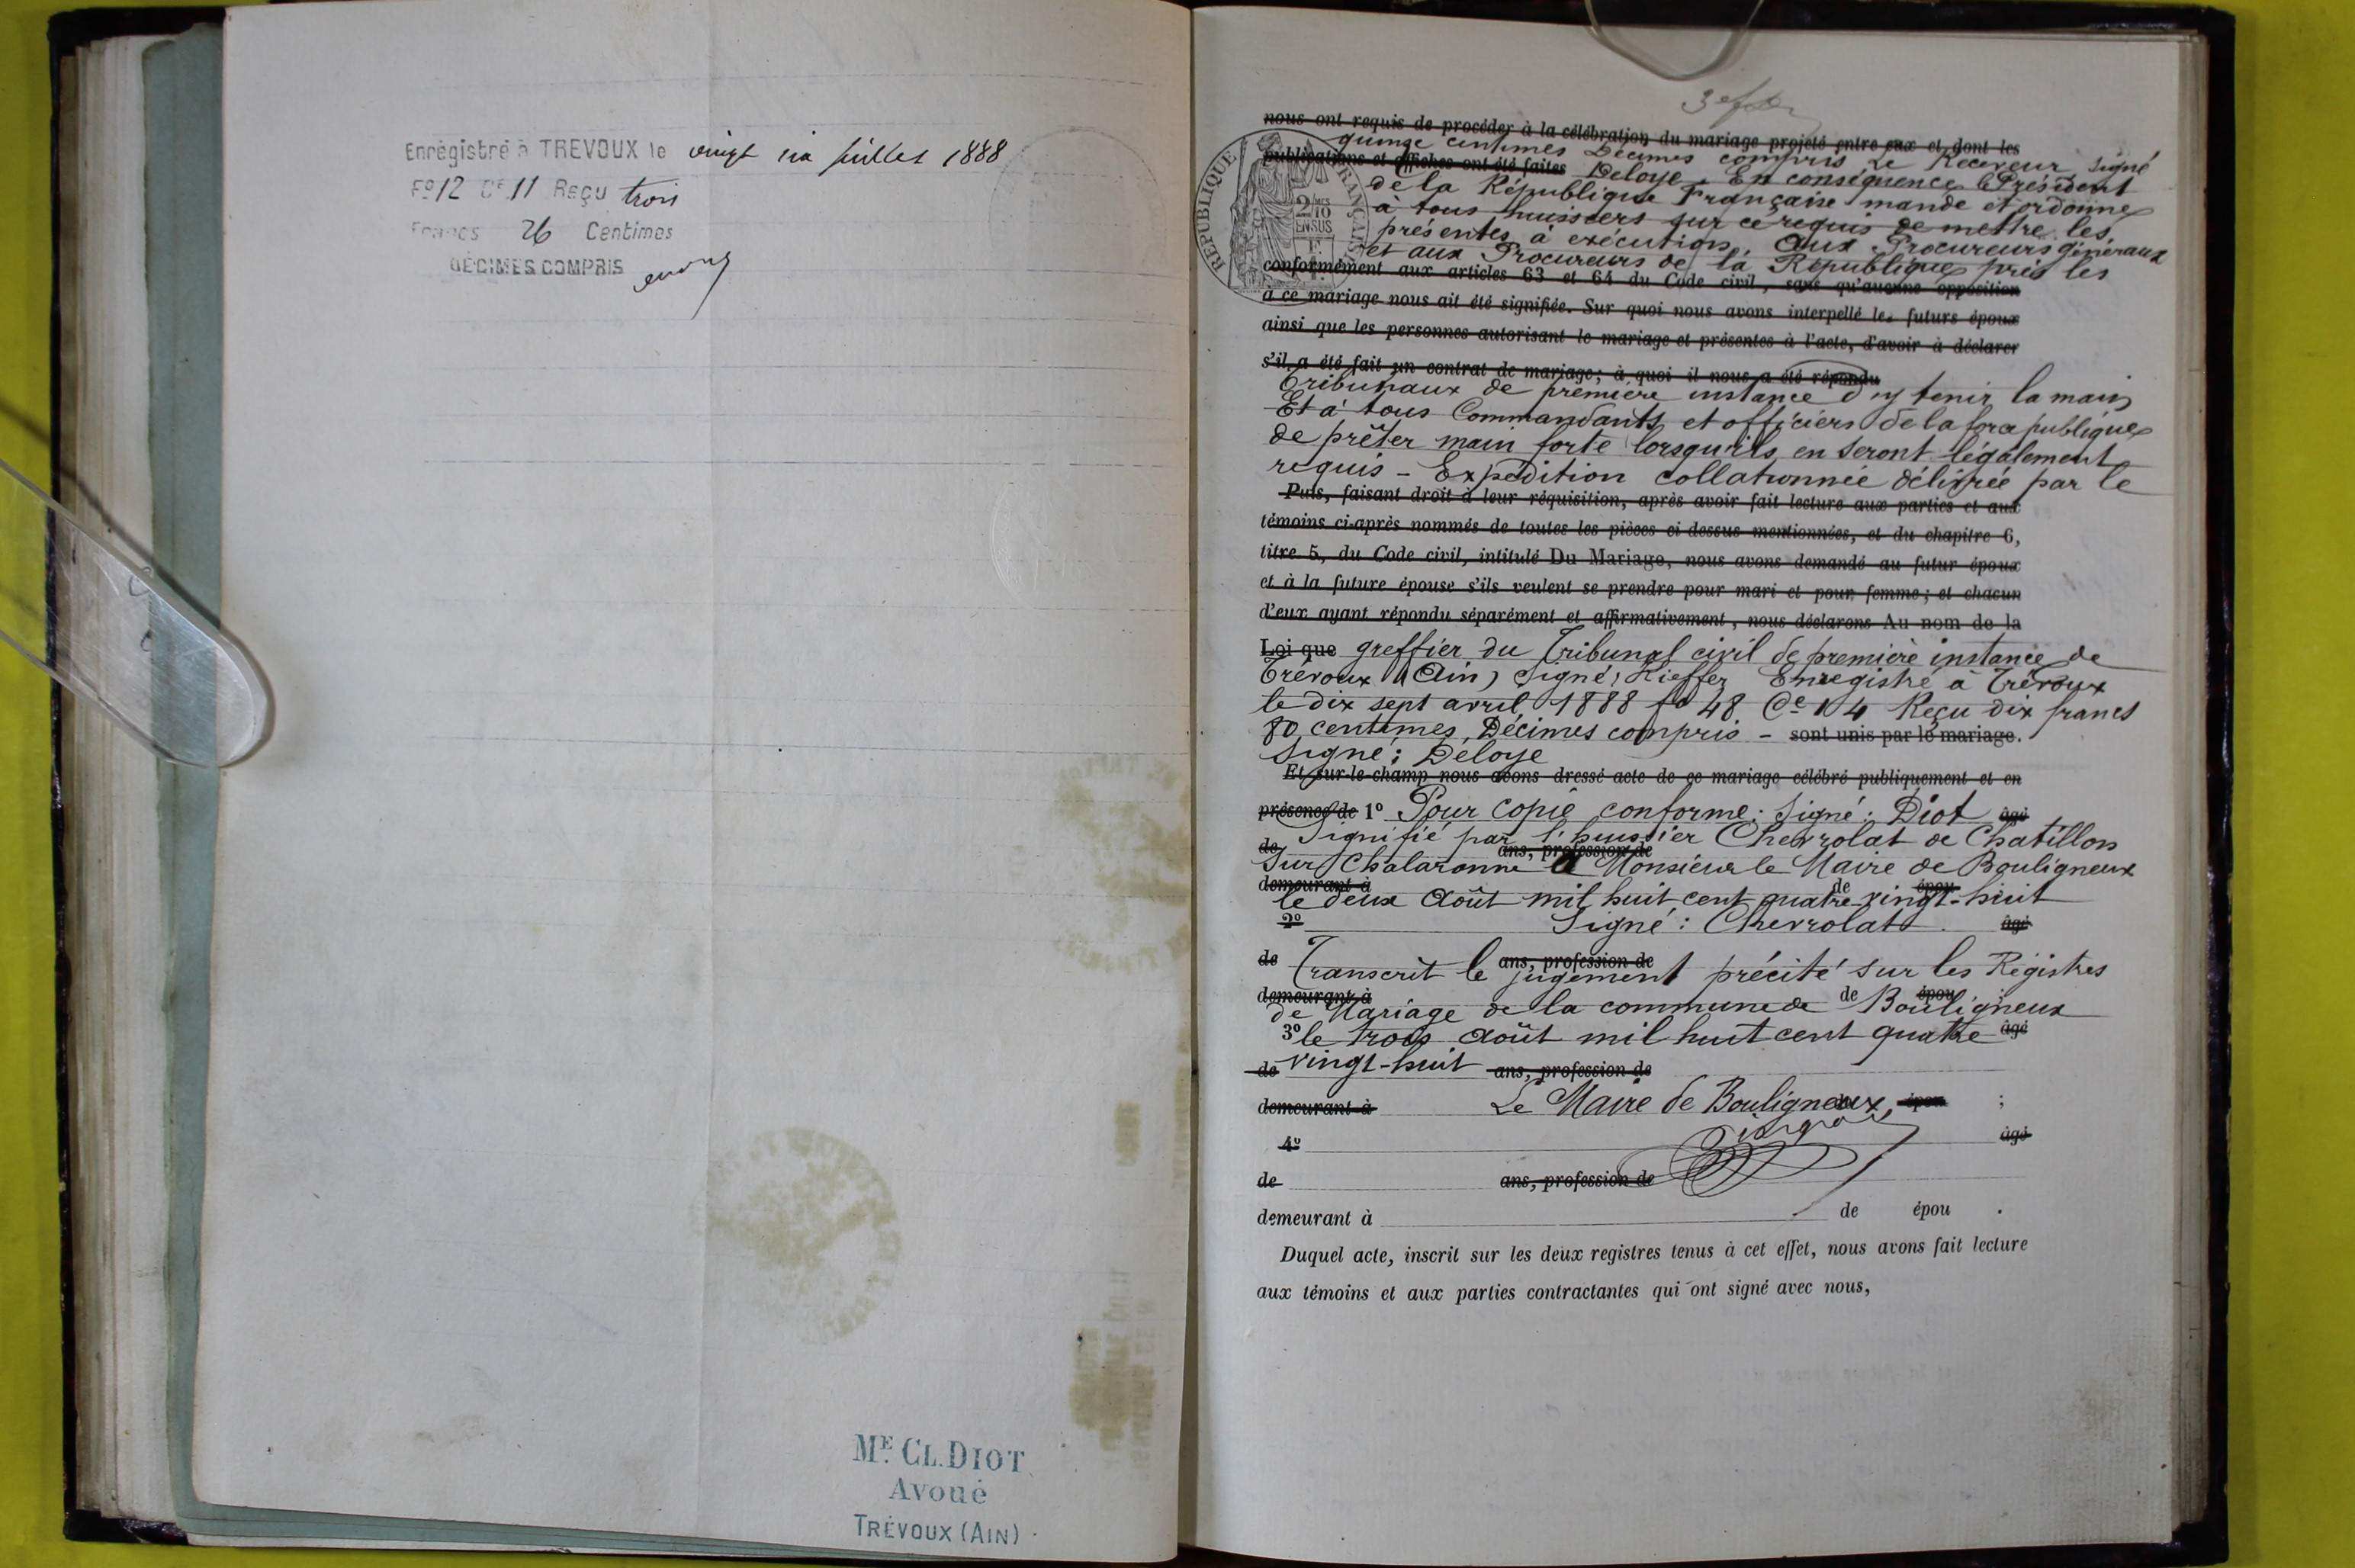 Enregistré à TREVOUX le vingt six juillet 1888
Fº 12 Cᵉ 11 Reçu trois
Francs 26 Centimes
DÉCIMES COMPRIS
Mᴱ. CL. DIOT
Avoué
TRÉVOUX (AIN)
nous ont requis de procéder à la célébration du mariage projeté entre eux et dont les
quinze centimes Décimes compris Le Receveur, signé
publications et affiches ont été faites Deloye. En conséquence le Président
de la République Française mande et ordonne
à tous huissiers sur ce requis de mettre les
présentes à exécution, aux Procureurs généraux
et aux Procureurs de la République près les
RÉPUBLIQUE FRANÇAISE
2/10 MES
EN SUS
conformément aux articles 63 et 64 du Code civil, sans qu'aucune opposition
à ce mariage nous ait été signifiée. Sur quoi nous avons interpellé les futurs époux
ainsi que les personnes autorisant le mariage et présentes à l'acte, d'avoir à déclarer
s'il a été fait un contrat de mariage; à quoi il nous a été répondu
Tribunaux de première instance d'y tenir la main
Et à tous Commandants et officiers de la force publique
de prêter main forte lorsqu'ils en seront légalement
requis - Expédition collationnée délivrée par le
Puis, faisant droit à leur réquisition, après avoir fait lecture aux parties et aux
témoins ci-après nommés de toutes les pièces ci-dessus mentionnées, et du chapitre 6,
titre 5, du Code civil, intitulé Du Mariage, nous avons demandé au futur époux
et à la future épouse s'ils veulent se prendre pour mari et pour femme; et chacun
d'eux ayant répondu séparément et affirmativement, nous déclarons Au nom de la
Loi que greffier du Tribunal civil de première instance de
Trévoux (Ain) Signé, Kieffer Enregistré à Trévoux
le dix sept avril 1888 fº 48 Cᵉ 14 Reçu dix francs
80 centimes, Décimes compris - sont unis par le mariage.
Signé: Deloye
Et sur-le-champ nous avons dressé acte de ce mariage célébré publiquement et en
présence de 1º Pour copie conforme: Signé: Diot âgé
Signifié par l'huissier Chevrolat de Chatillon
de ans, profession de
sur Chalaronne à Monsieur le Maire de Bouligneux
demeurant à de épou
le deux Août mil huit cent quatre vingt-huit
2º Signé: Chevrolat. âgé
de ans, profession de
Transcrit le jugement précité sur les Registres
demeurant à de épou
de Mariage de la commune de Bouligneux
3º le trois Août mil huit cent quatre âgé
de vingt-huit ans, profession de
demeurant à Le Maire de Bouligneux, épou ;
4º âgé
de ans, profession de
demeurant à de épou .
Duquel acte, inscrit sur les deux registres tenus à cet effet, nous avons fait lecture
aux témoins et aux parties contractantes qui ont signé avec nous,